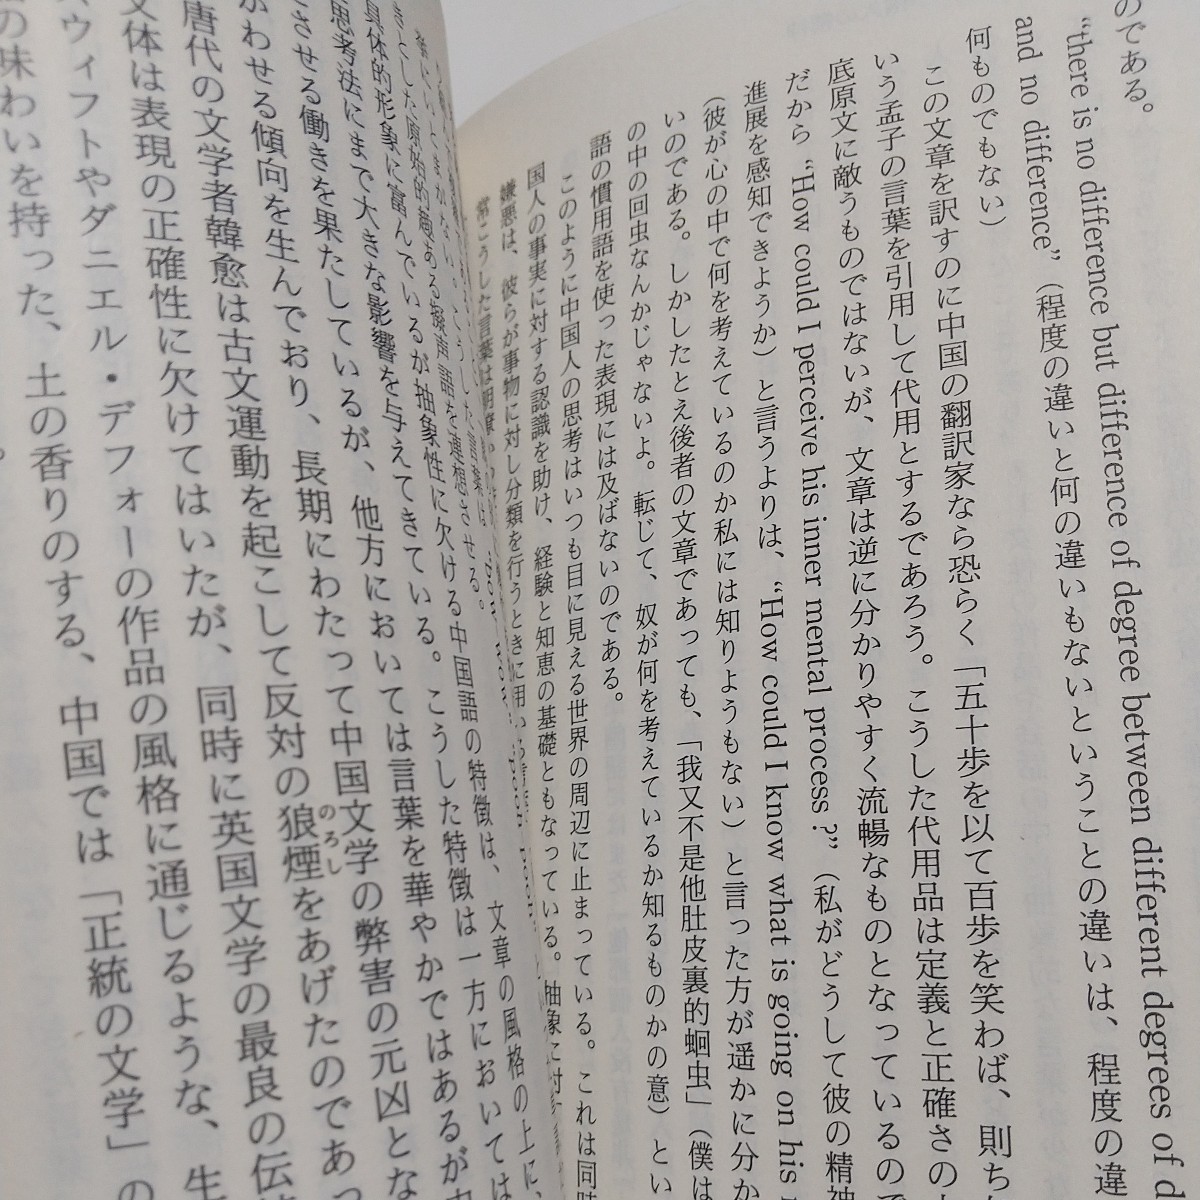 のである。
"there is no difference but difference of degree between different degrees of d
and no difference" (程度の違いと何の違いもないということの違いは、程度の違
何ものでもない)
この文章を訳すのに中国の翻訳家なら恐らく「五十歩を以て百歩を笑わば、則ち
いう孟子の言葉を引用して代用とするであろう。こうした代用品は定義と正確さの
底原文に敵うものではないが、文章は逆に分かりやすく流暢なものとなっているので
だから "How could I perceive his inner mental process?" (私がどうして彼の精神
進展を感知できようか) と言うよりは、"How could I know what is going on his
(彼が心の中で何を考えているのか私には知りようもない) と言った方が遥かに分か
いのである。しかしたとえ後者の文章であっても、「我又不是他肚皮裏的蛔虫」(僕は
の中の回虫なんかじゃないよ。転じて、奴が何を考えているか知るものかの意) とい
語の慣用語を使った表現には及ばないのである。
このように中国人の思考はいつも目に見える世界の周辺に止まっている。これは同時
国人の事実に対する認識を助け、経験と知恵の基礎ともなっている。抽象に対
嫌悪は、彼らが事物に対し分類を行うときに用い
常こうした言葉は明瞭
挙にいとまがない。こうした言葉は
きとした原始的趣ある擬声語を連想させる。
具体的形象に富んでいるが抽象性に欠ける中国語の特徴は、文章の風格の上に、
思考法にまで大きな影響を与えてきている。こうした特徴は一方においては
させる働きを果たしているが、他方においては言葉を華やかではあるが
かわせる傾向を生んでおり、長期にわたって中国文学の弊害の元凶とな
唐代の文学者韓愈は古文運動を起こして反対の狼煙(のろし)をあげたのであっ
文体は表現の正確性に欠けてはいたが、同時に英国文学の最良の伝統
スウィフトやダニエル・デフォーの作品の風格に通じるような、生
の味わいを持った、土の香りのする、中国では「正統の文学」の